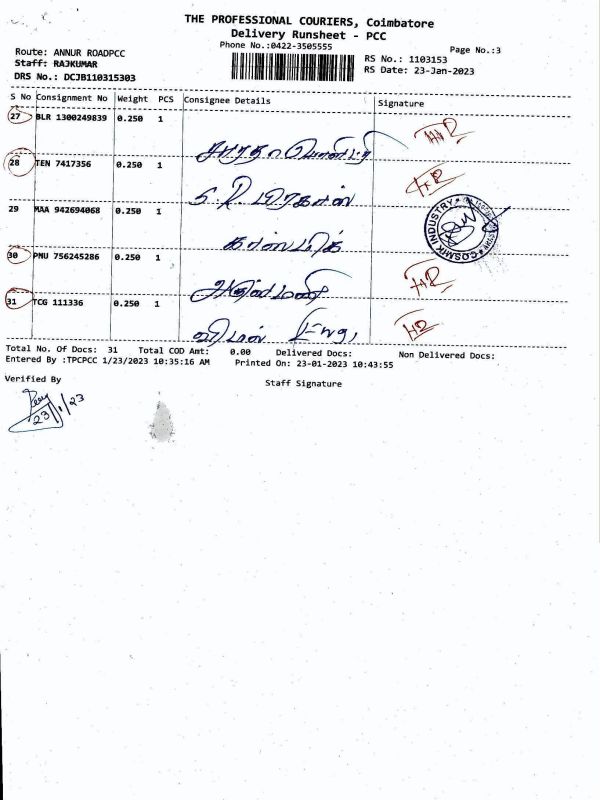 THE PROFESSIONAL COURIERS, Coimbatore
Delivery Runsheet - PCC
Phone No.:0422-3505555
Page No.:3
Route: ANNUR ROADPCC
Staff: RAJKUMAR
DRS No.: DCJB110315303
RS No.: 1103153
RS Date: 23-Jan-2023
S No Consignment No Weight PCS Consignee Details Signature
27 BLR 1300249839 0.250 1
28 TEN 7417356 0.250 1
S.R.
29 MAA 942694068 0.250 1
COSMIK INDUSTRY
30 PNU 756245286 0.250 1
31 TCG 111336 0.250 1
Total No. Of Docs: 31 Total COD Amt: 0.00 Delivered Docs: Non Delivered Docs:
Entered By :TPCPCC 1/23/2023 10:35:16 AM Printed On: 23-01-2023 10:43:55
Verified By
Staff Signature
23/1/23